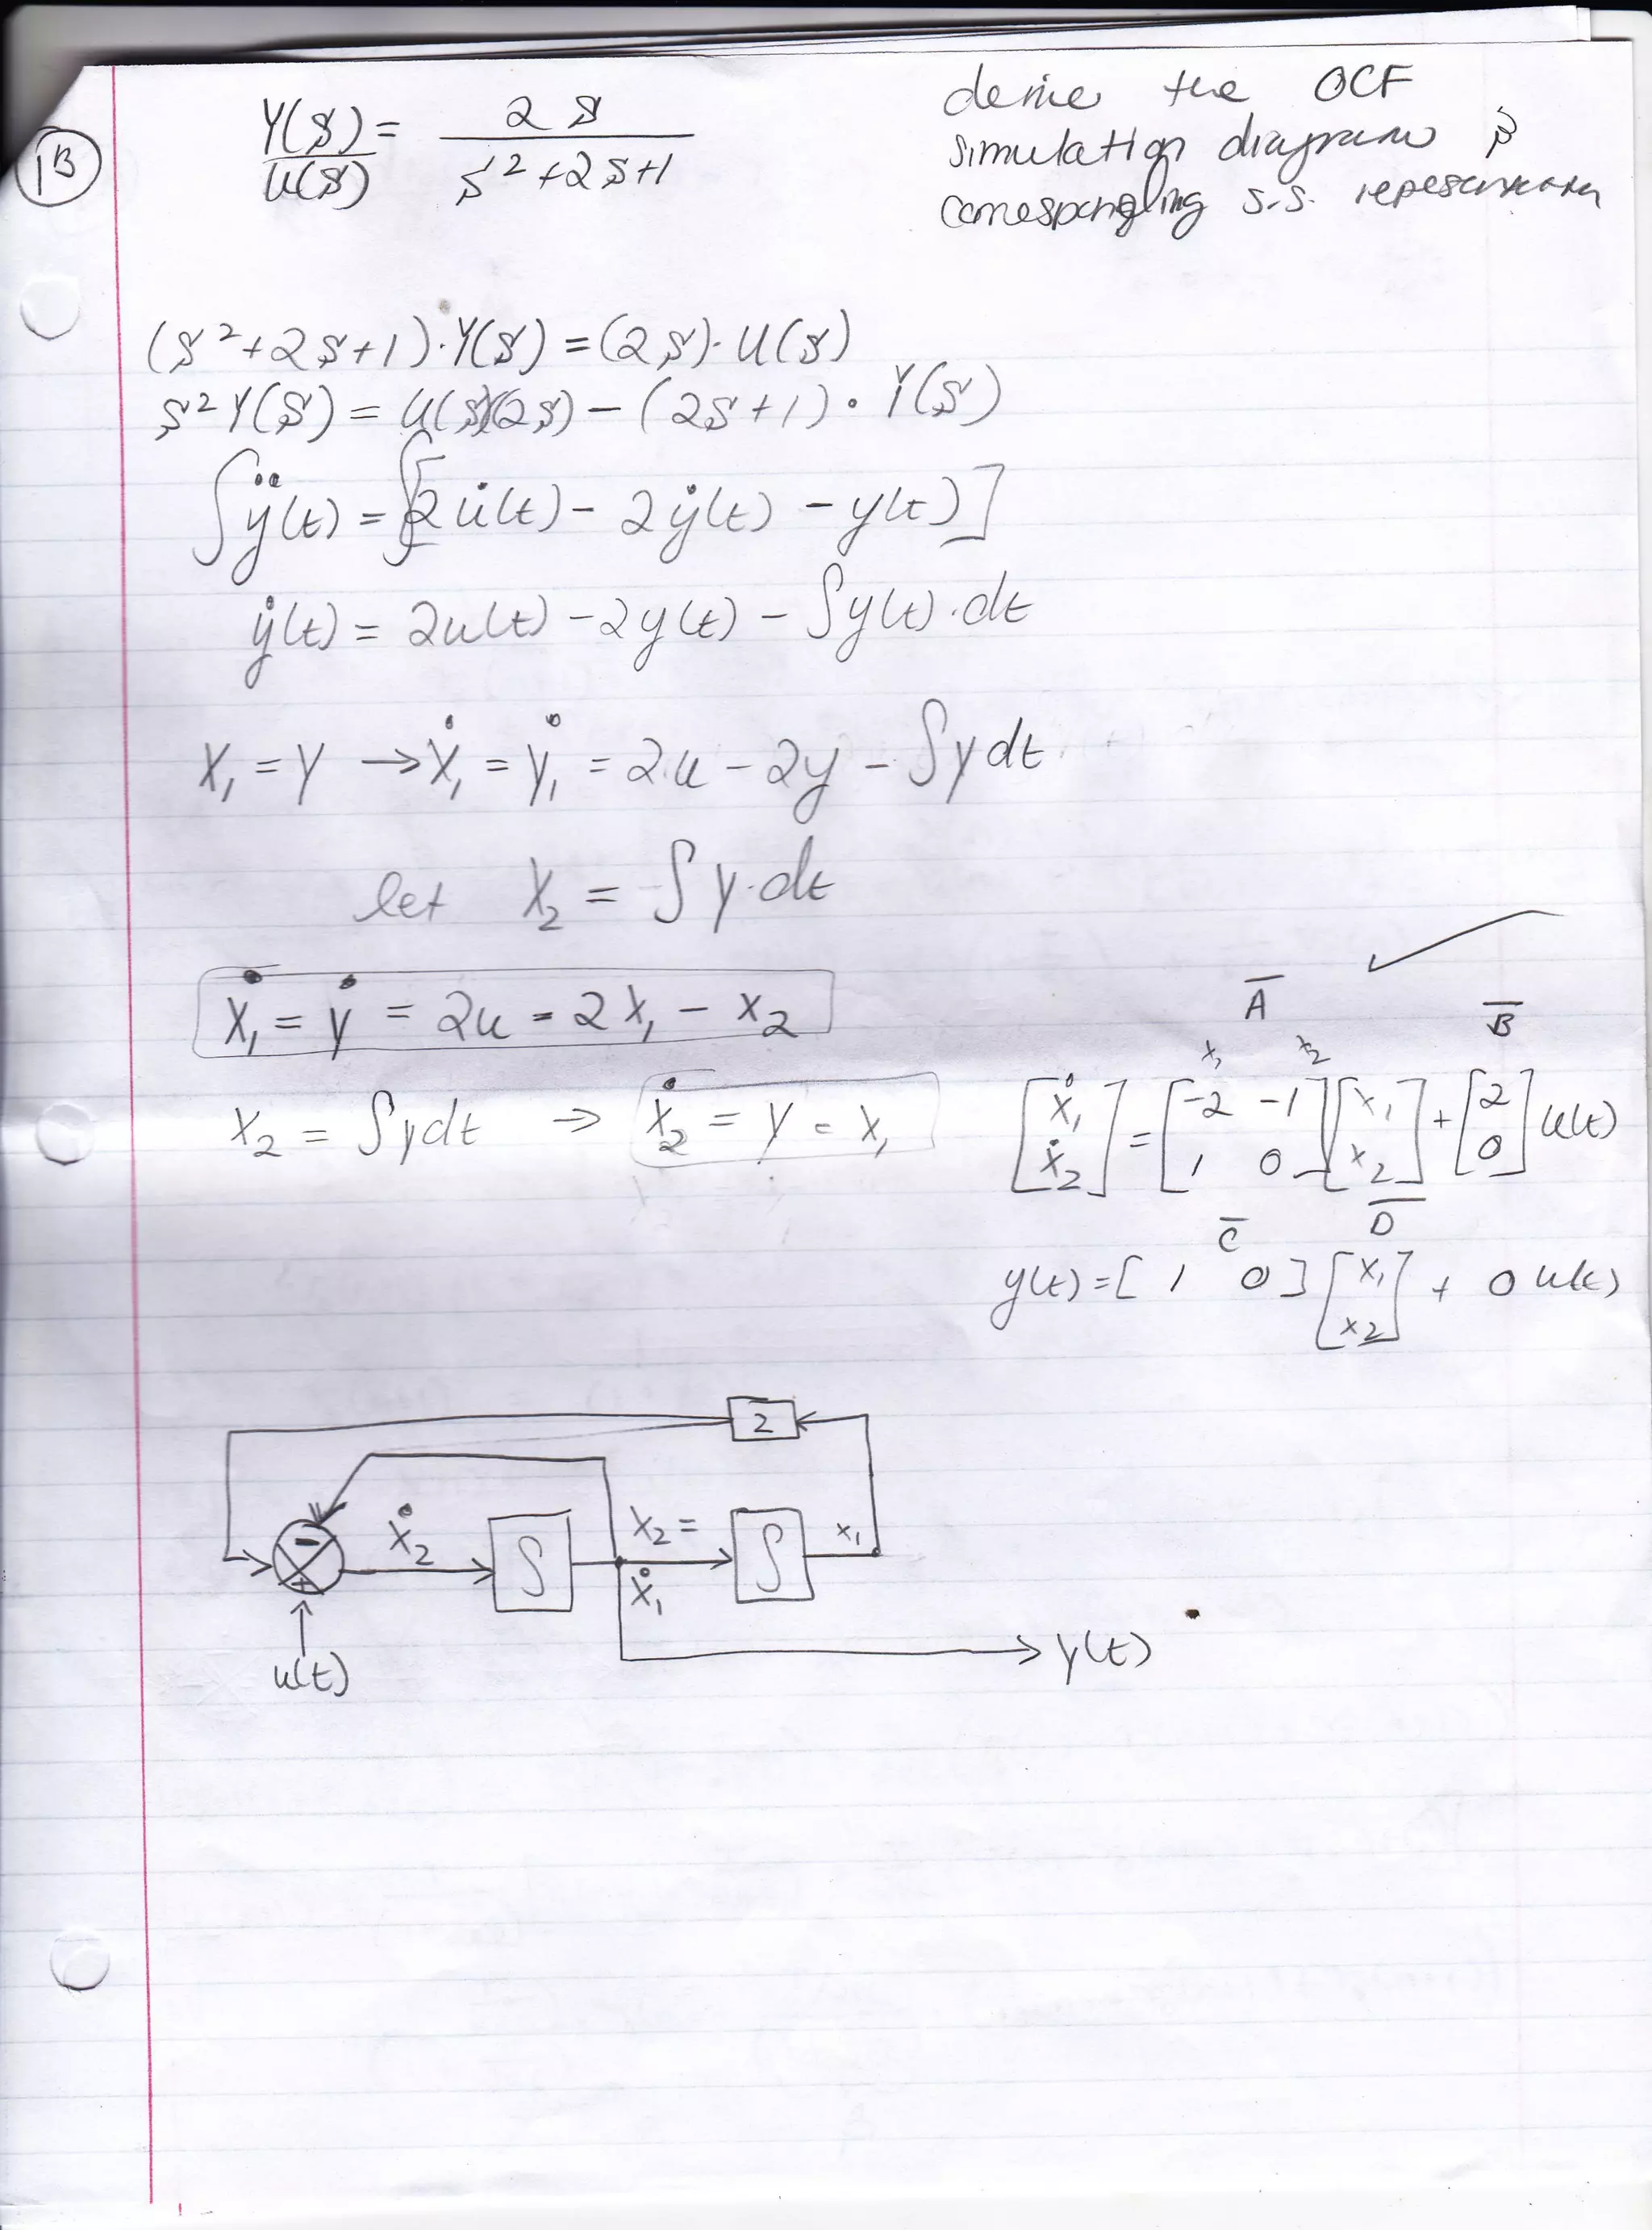 1B
Y(s)/U(s) = 2s / s²+2s+1
derive the OCF
simulation diagram &
corresponding s.s. representation
(s²+2s+1)·Y(s) = (2s)·U(s)
s²Y(s) = U(s)(2s) - (2s+1)·Y(s)
∫ÿ(t) = ∫[2u̇(t) - 2ẏ(t) - y(t)]
ẏ(t) = 2u(t) - 2y(t) - ∫y(t)·dt
X₁ = Y → Ẋ₁ = Ẏ₁ = 2u - 2y - ∫y dt
let X₂ = ∫y·dt
Ẋ₁ = ẏ = 2u - 2X₁ - X₂
X₂ = ∫y dt ⇒ Ẋ₂ = Y = X₁
A B
x₁ x₂
[Ẋ₁ Ẋ₂] = [-2 -1 1 0] [X₁ X₂] + [2 0] u(t)
C D
y(t) = [1 0] [X₁ X₂] + 0 u(t)
2
- Ẋ₂ ∫ X₂ = ∫ X₁
+ Ẋ₁
u(t) y(t)